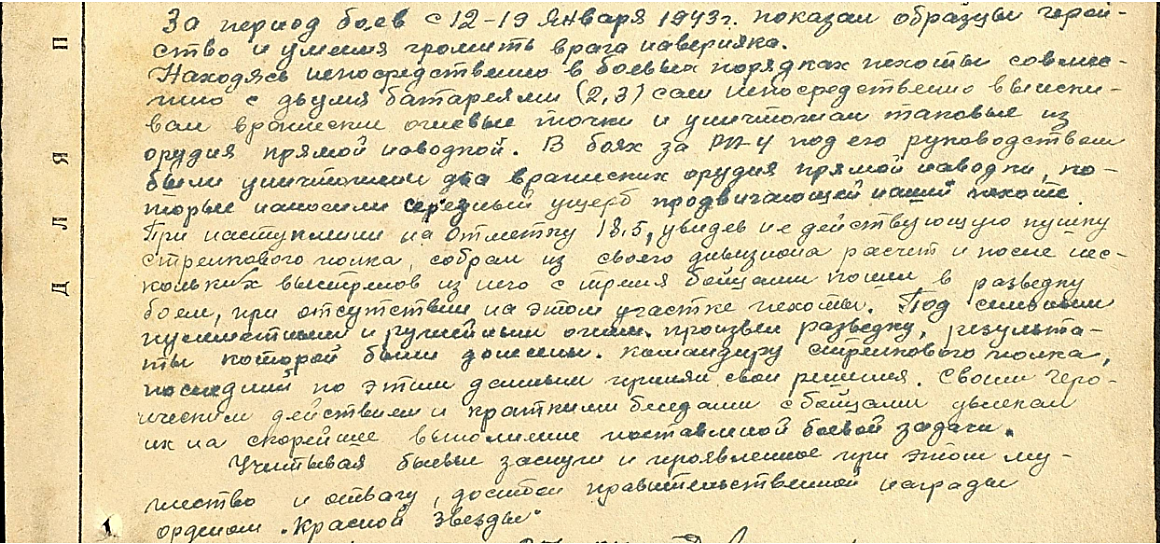 За период боев с 12-19 Января 1943г. показал образцы герой-
ство и умения громить врага наверняка.
Находясь непосредственно в боевых порядках пехоты совмес-
тно с двумя батареями (2,3) сам непосредственно выиски-
вал вражески огневые точки и уничтожал таковые из
орудия прямой наводкой. В боях за РП-4 под его руководством
были уничтожены два вражеских орудия прямой наводки, ко-
торые наносили серезный ущерб продвигающей нашей пехоте.
При наступлении на отметку 18.5, увидев не действующую пушку
стрелкового полка, собрал из своего дивизиона расчет и после нес-
кольких выстрелов из него с тремя бойцами пошел в разведку
боем, при отсутствии на этом участке пехоты. Под сильным
пулеметным и ружейным огнем. произвел разведку, результа-
ты которой были доложены. командиру стрелкового полка,
последний по этим данным принял свои решения. Своим геро-
ическим действием и краткими беседами с бойцами увлекал
их на скорейшее выполнение поставленой боевой задачи.
Учитывая боевые заслуги и проявленное при этом му-
жество и отвагу, достоен правительственной награды
орденом "Красной Звезды"
Д Л Я П